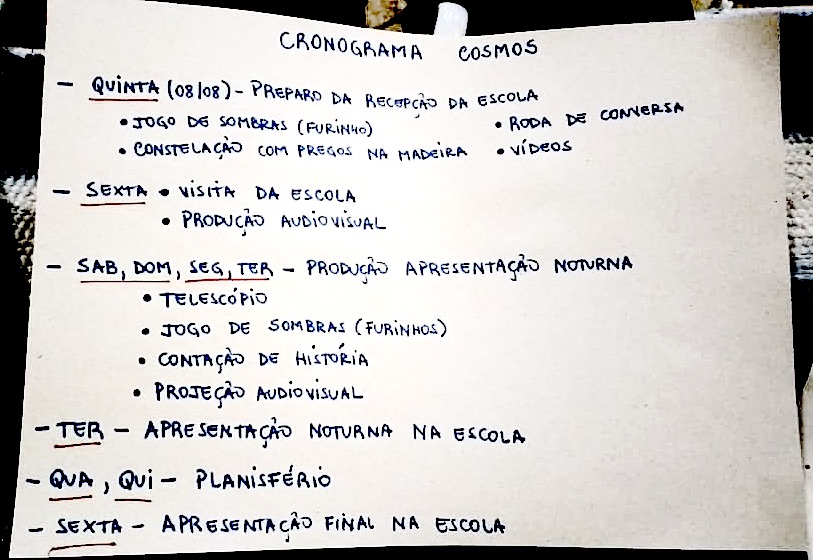 CRONOGRAMA COSMOS
- QUINTA (08/08) - PREPARO DA RECEPÇÃO DA ESCOLA
• JOGO DE SOMBRAS (FURINHO) • RODA DE CONVERSA
• CONSTELAÇÃO COM PREGOS NA MADEIRA • VÍDEOS
- SEXTA • VISITA DA ESCOLA
• PRODUÇÃO AUDIOVISUAL
- SAB, DOM, SEG, TER - PRODUÇÃO APRESENTAÇÃO NOTURNA
• TELESCÓPIO
• JOGO DE SOMBRAS (FURINHOS)
• CONTAÇÃO DE HISTÓRIA
• PROJEÇÃO AUDIOVISUAL
- TER - APRESENTAÇÃO NOTURNA NA ESCOLA
- QUA, QUI - PLANISFÉRIO
- SEXTA - APRESENTAÇÃO FINAL NA ESCOLA